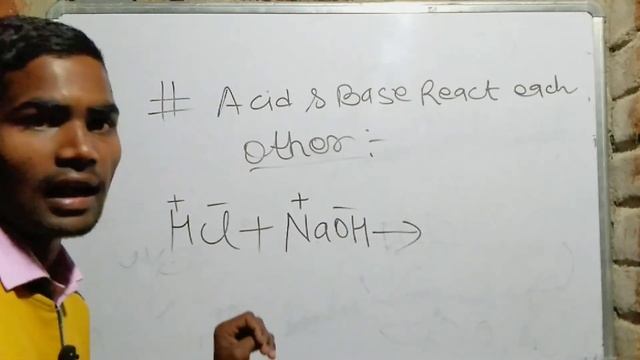 # Acid & Base React each
other :-
H⁺Cl⁻ + Na⁺OH⁻ →